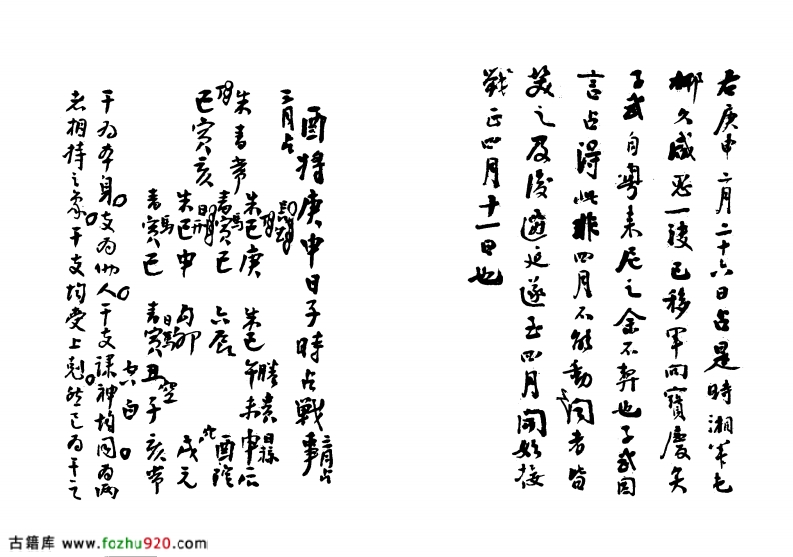 右庚申二月二十六日占是時湘軍屯
郴久咸一已移軍向寶慶矣
子武自粵來之余不也子武因
言占得此非四月不能動聞者皆
笑之及後遷延遂至四月開始接
戰正四月十一日也
酉將庚申日子時占戰事
三月占
三月占
朱青常
巳寅亥
朱巳庚
青寅巳
朱巳申
青寅巳
朱巳午未申后
六辰 酉陰
勾卯 戌元
青寅丑子亥常
貴 日祿
日馬 空
六 白
干為本身支為他人干支課神均同為兩
者相持之象干支均受上剋然巳為干之
古籍库 www.fozhu920.com